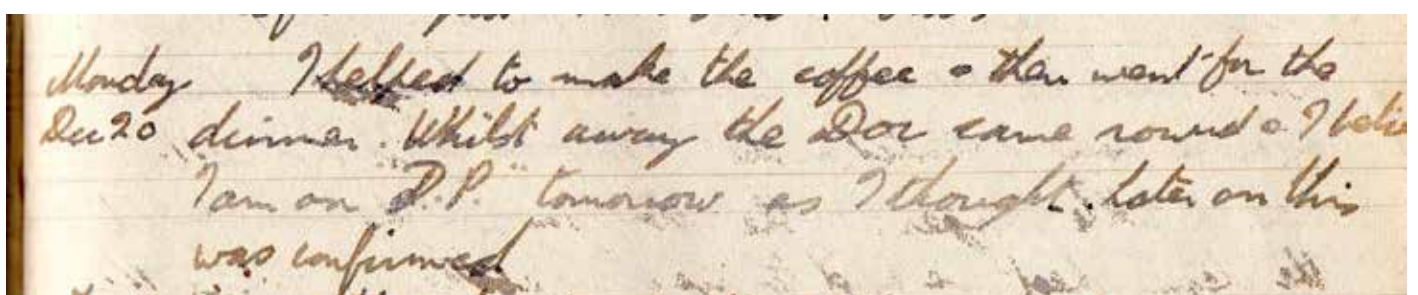 Monday I helped to make the coffee & then went for the
Dec 20 dinner. Whilst away the Doc came round & I belie
I am on D.P. tomorrow as I thought. Later on this
was confirmed